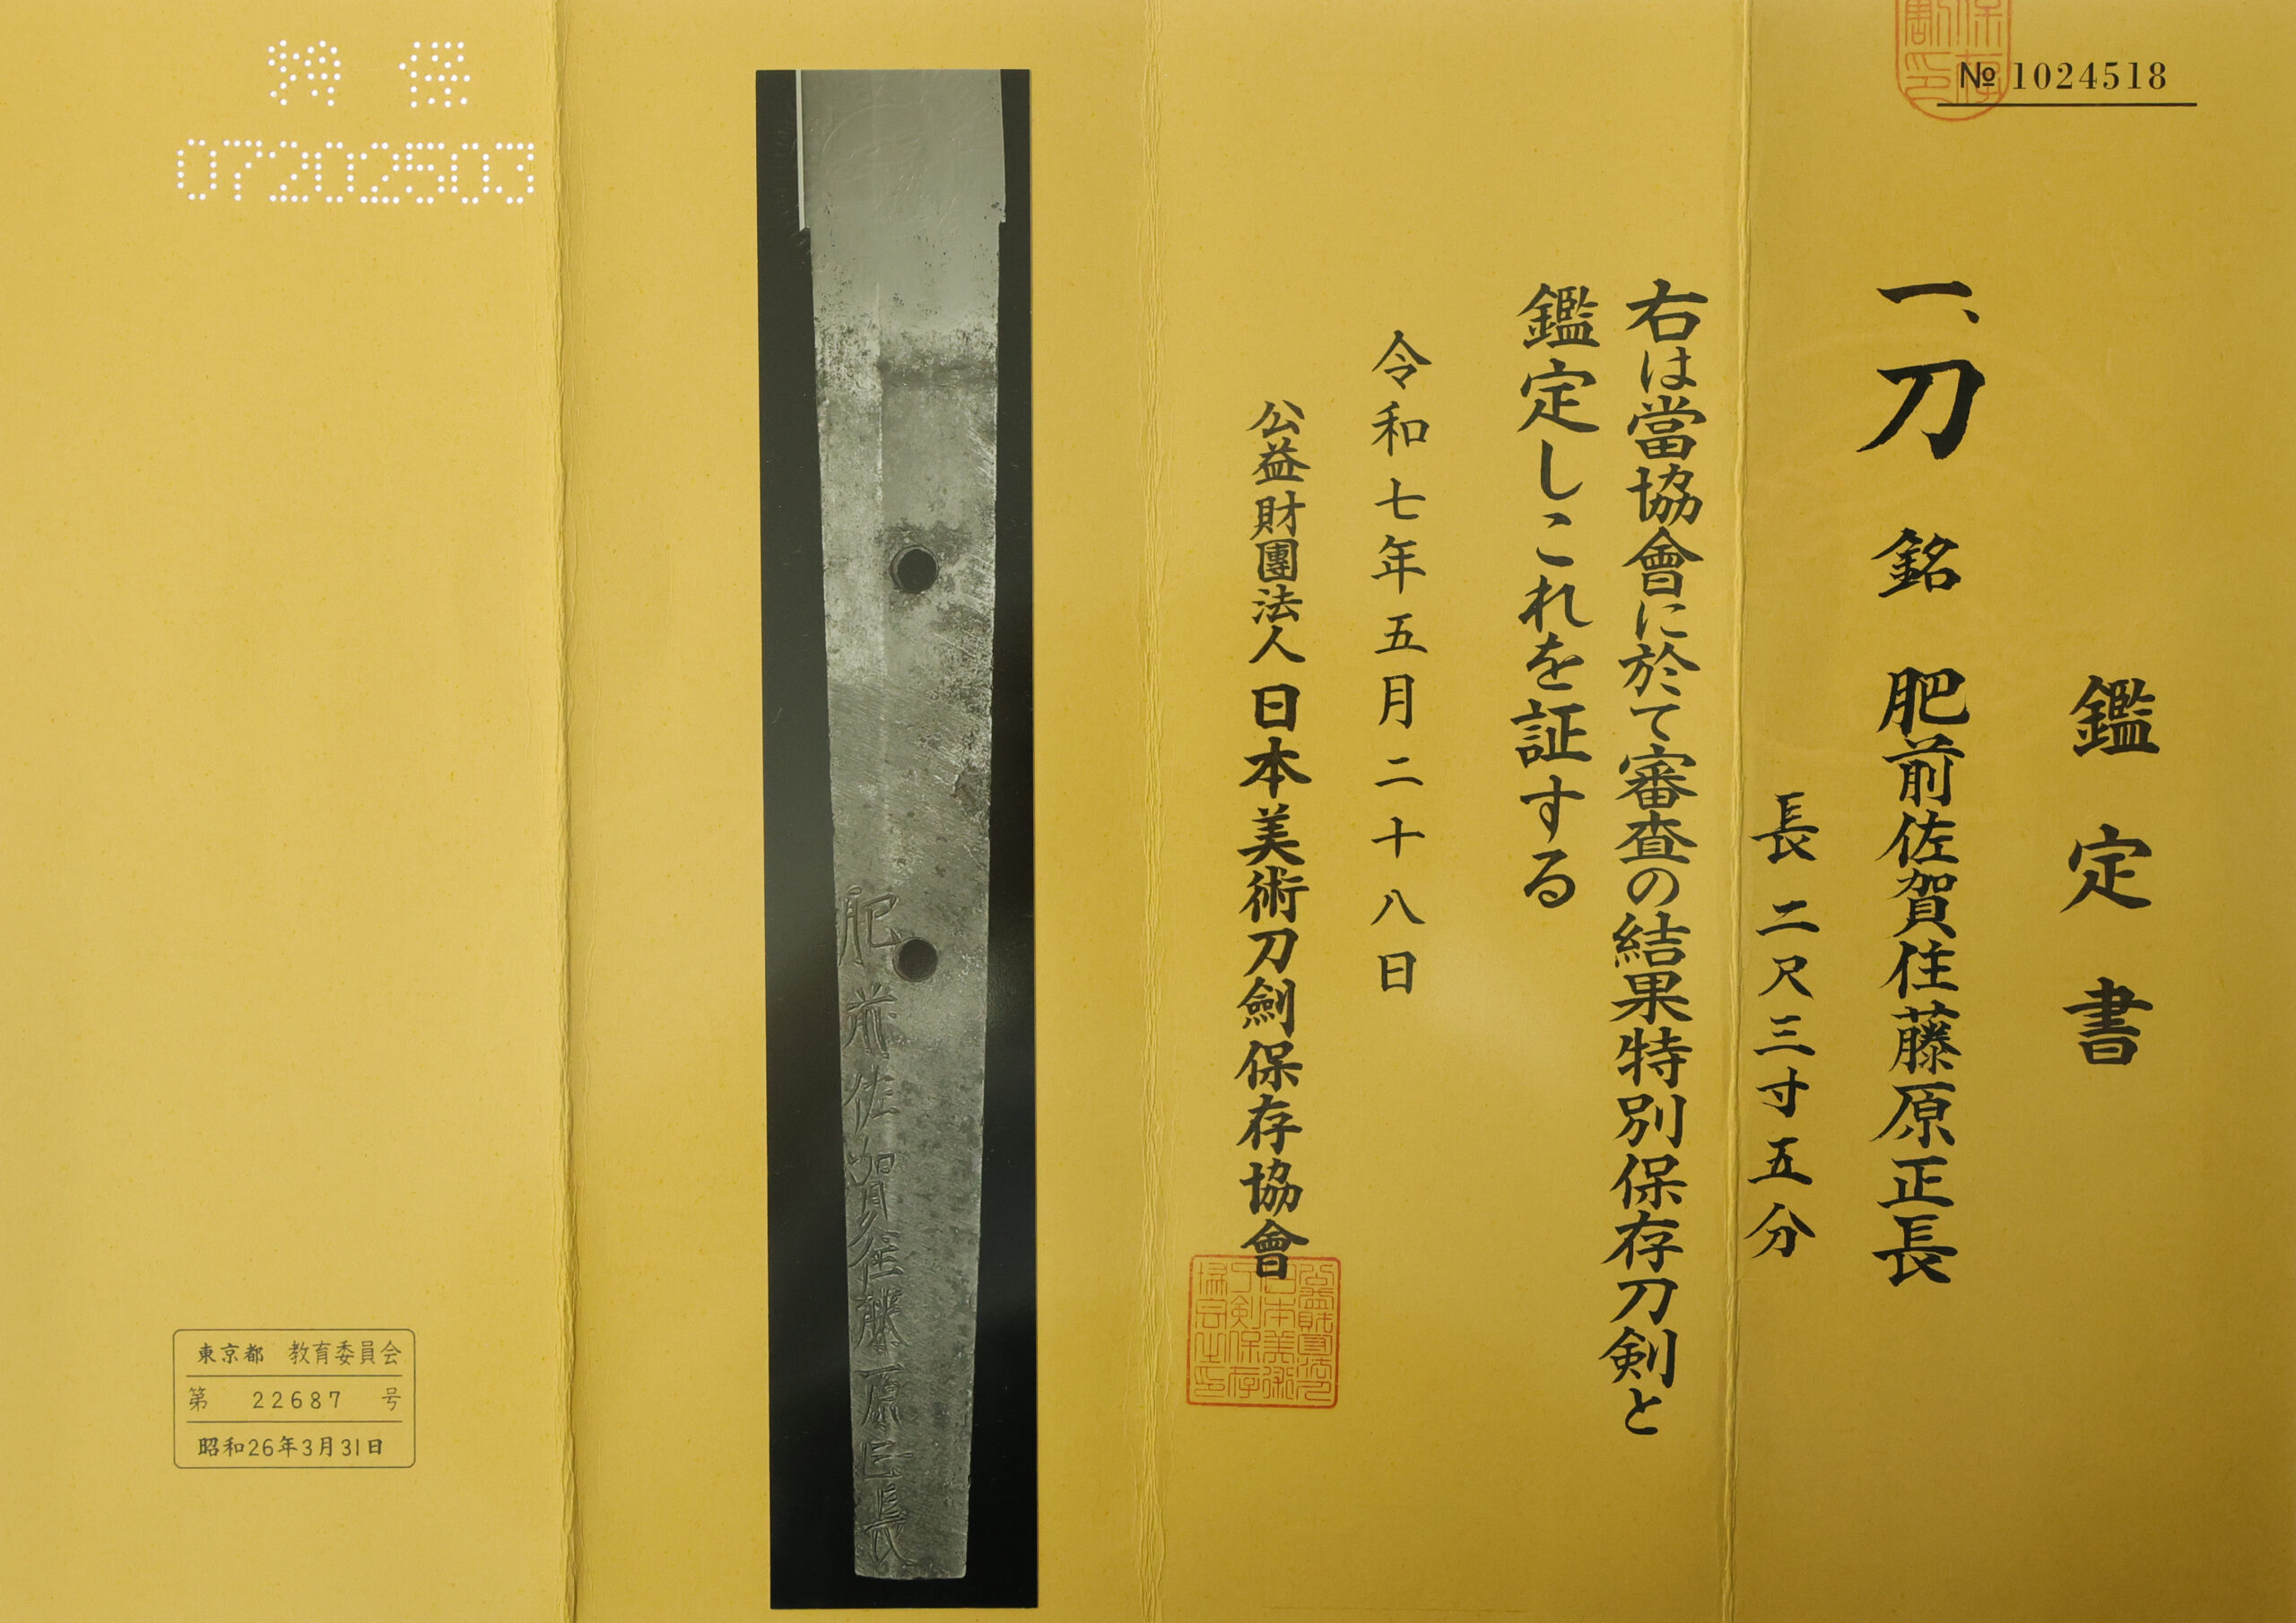 № 1024518
鑑定書
一、刀 銘 肥前佐賀住藤原正長
長二尺三寸五分
右は當協會に於て審査の結果特別保存刀剣と
鑑定しこれを証する
令和七年五月二十八日
公益財團法人 日本美術刀劍保存協會
肥前佐賀住藤原正長
特保
07202503
東京都 教育委員会
第 22687 号
昭和26年3月31日